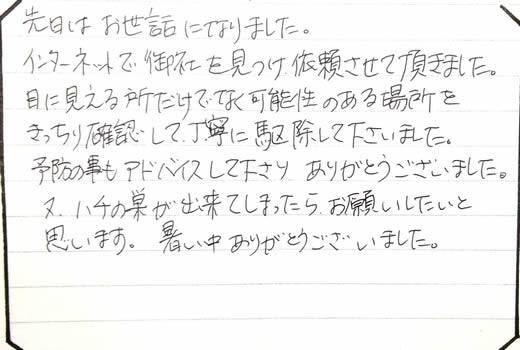 先日は お世話になりました。
インターネットで 御社を見つけ 依頼させて頂きました。
目に見える所だけでなく可能性のある場所を
きっちり確認して、丁寧に駆除して下さいました。
予防の事もアドバイスして下さり ありがとうございました。
又、ハチの巣が出来てしまったら、お願いしたいと
思います。 暑い中ありがとうございました。